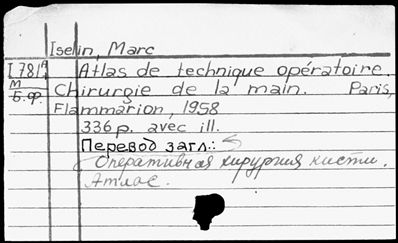 Iselin, Marc
[781А Atlas de technique opératoire.
М Chirurgie de la main. Paris,
Б.ф. Flammarion, 1958
336p. avec ill.
Перевод загл.:
Оперативная хирургия кисти.
Атлас.